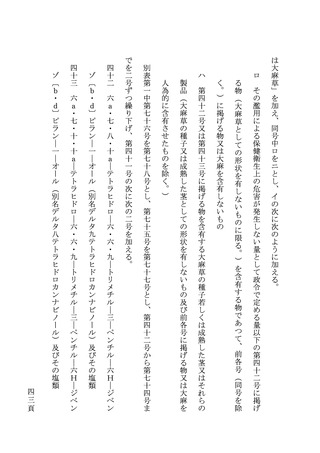 は大麻草」を加え、同号中ロをニとし、イの次に次のように加える。
ロ　その濫用による保健衛生上の危害が発生しない量として政令で定める量以下の第四十二号に掲げ
る物（大麻草としての形状を有しないものに限る。）を含有する物であつて、前各号（同号を除
く。）に掲げる物又は大麻を含有しないもの
ハ　第四十二号又は第四十三号に掲げる物を含有する大麻草の種子若しくは成熟した茎又はそれらの
製品（大麻草の種子又は成熟した茎としての形状を有しないもの及び前各号に掲げる物又は大麻を
人為的に含有させたものを除く。）
別表第一中第七十六号を第七十八号とし、第七十五号を第七十七号とし、第四十二号から第七十四号ま
でを二号ずつ繰り下げ、第四十一号の次に次の二号を加える。
四十二　六ａ・七・八・十ａ―テトラヒドロ―六・六・九―トリメチル―三―ペンチル―六Ｈ―ジベン
ゾ〔ｂ・ｄ〕ピラン―一―オール（別名デルタ九テトラヒドロカンナビノール）及びその塩類
四十三　六ａ・七・十・十ａ―テトラヒドロ―六・六・九―トリメチル―三―ペンチル―六Ｈ―ジベン
ゾ〔ｂ・ｄ〕ピラン―一―オール（別名デルタ八テトラヒドロカンナビノール）及びその塩類
四三頁